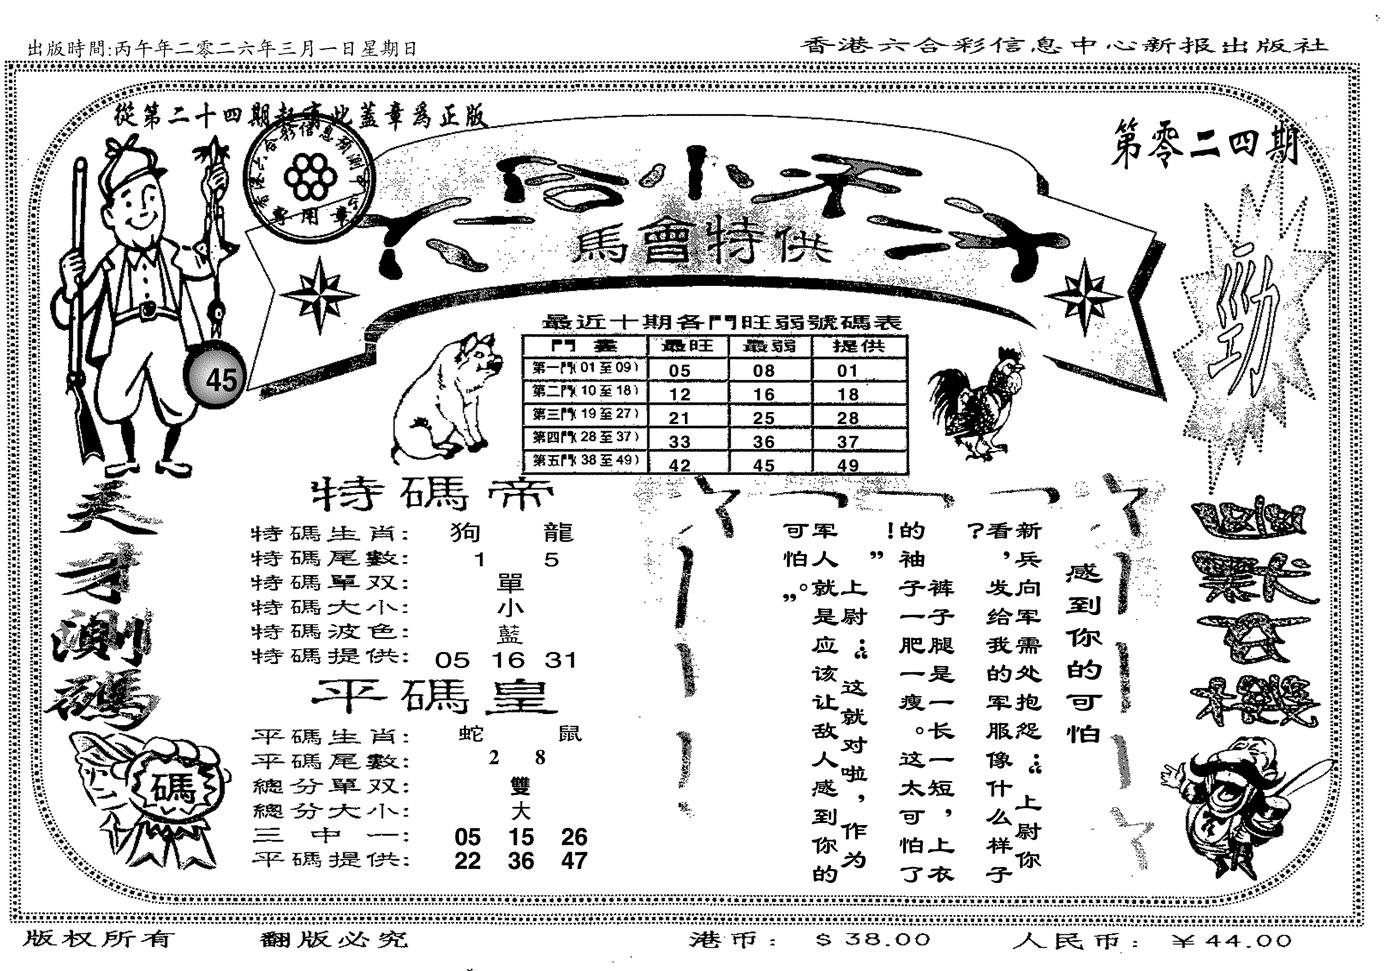 出版時間:丙午年二零二六年三月一日星期日
香港六合彩信息中心新报出版社
從第二十四期起 此蓋章爲正版
第零二四期
專用章
六合小天才
馬會特供
勁
45
最近十期各門旺弱號碼表
門 最旺 最弱 提供
第一門(01至09) 05 08 01
第二門(10至18) 12 16 18
第三門(19至27) 21 25 28
第四門(28至37) 33 36 37
第五門(38至49) 42 45 49
天才測碼
碼
特碼帝
特碼生肖: 狗 龍
特碼尾數: 1 5
特碼單双: 單
特碼大小: 小
特碼波色: 藍
特碼提供: 05 16 31
平碼皇
平碼生肖: 蛇 鼠
平碼尾數: 2 8
總分單双: 雙
總分大小: 大
三中一: 05 15 26
平碼提供: 22 36 47
感到你的可怕
新兵向军需处抱怨:“上尉你
看,发给我的军服像什么样子
?裤子腿一是一长一短,上衣
的袖子一肥一瘦。这太可怕了
!”
上尉:“这就对啦,作为
军人就是应该让敌人感到你的
可怕。”
版权所有
翻版必究
港币: $38.00
人民币: ¥44.00